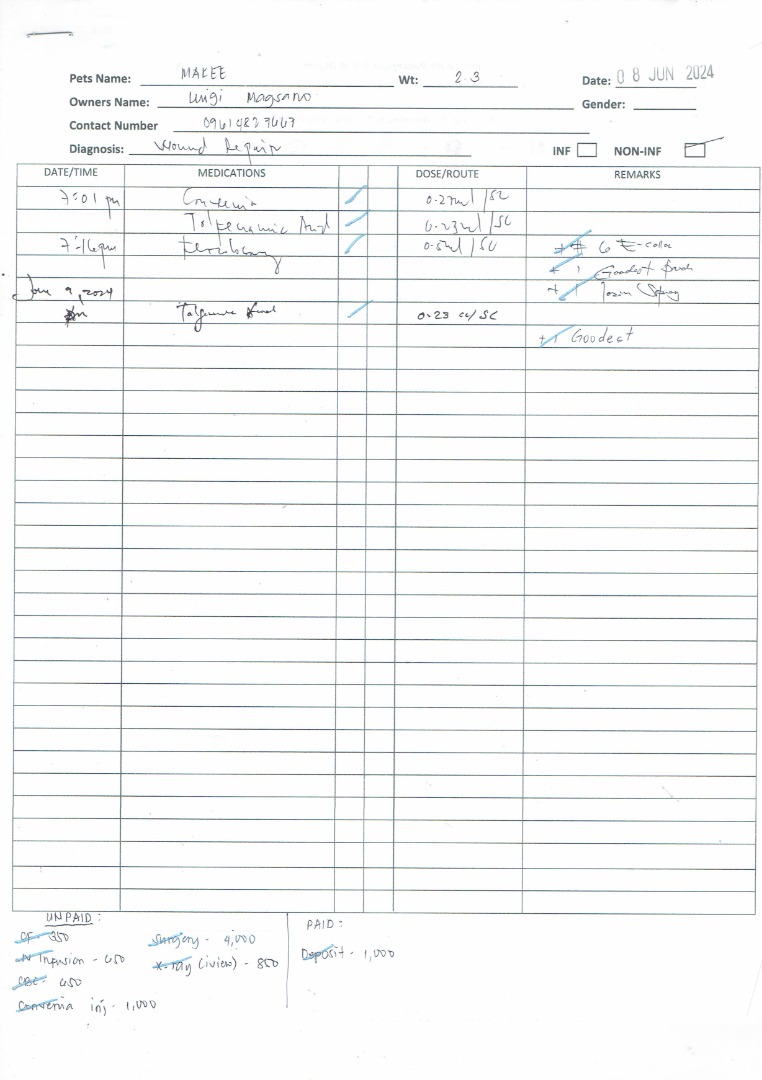 Pets Name: MAKEE Wt: 2.3 Date: 08 JUN 2024
Owners Name: Luigi Magsano Gender:
Contact Number
Diagnosis: Wound Repair INF NON-INF
DATE/TIME MEDICATIONS DOSE/ROUTE REMARKS
7:01 pm Convenia 0.23ml/SC
Acid 0.23ml/SC
7:16pm 0.5ml/SC # 6 E-collar
+ 1 Goodest
June 9, 2024 + 1 Spray
0.23 cc/SC
+1 Goodest
UNPAID: PAID:
CF - 350 Surgery - 4,000 Deposit - 1,000
IV Infusion - 650 X-ray (1view) - 850
CBC - 650
Convenia inj - 1,000